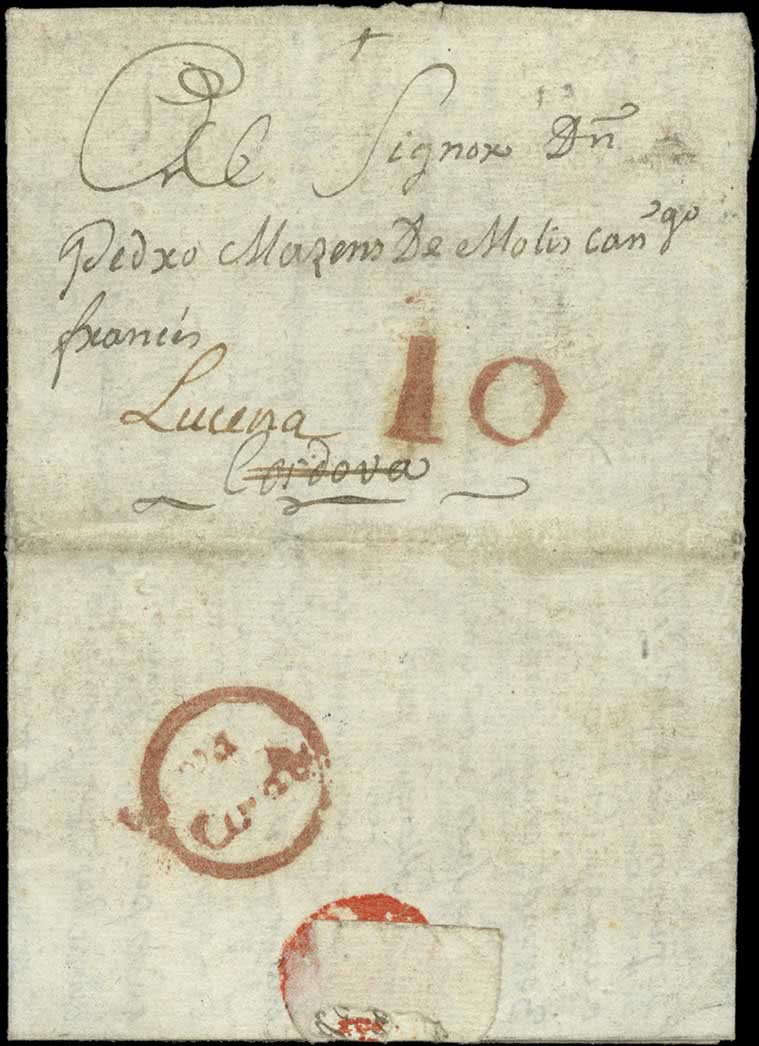 Al Signor Dn
Pedro Mazens De Molis can.go
francés
10
Lucena
Cordova